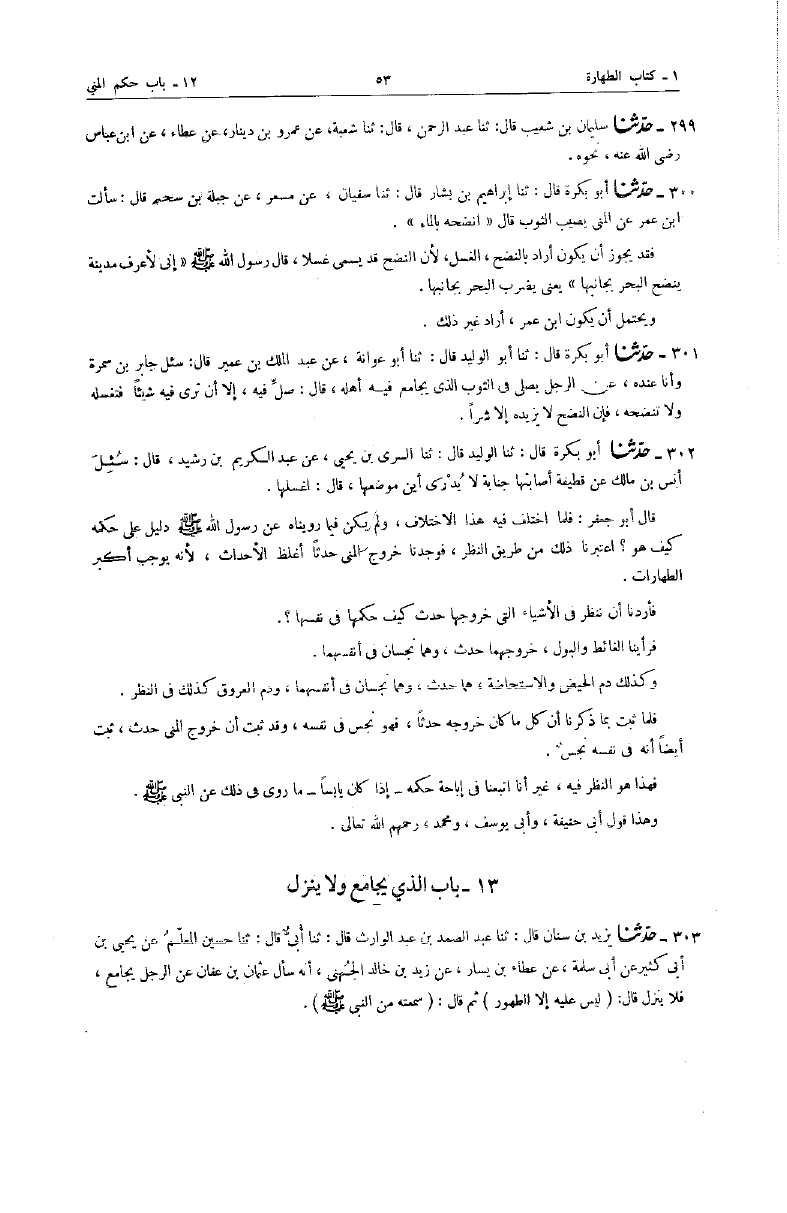 ١ ـ كتاب الطهارة ٥٣ ١٢ ـ باب حكم المني
٢٩٩ ـ حدّثنا سليمان بن شعيب قال: ثنا عبد الرحمن ، قال: ثنا شعبة، عن عمرو بن دينار، عن عطاء ، عن ابن عباس
رضى الله عنه ، نحوه .
٣٠٠ ـ حدّثنا أبو بكرة قال : ثنا إبراهيم بن بشار قال : ثنا سفيان ، عن مسعر ، عن جبلة بن سحيم قال : سألت
ابن عمر عن المنى يصيب الثوب قال « انضحه بالماء » .
فقد يجوز أن يكون أراد بالنضح ، الغسل، لأن النضح قد يسمى غسلا ، قال رسول الله ﷺ « إنى لأعرف مدينة
ينضح البحر بجانبها » يعنى يضرب البحر بجانبها .
ويحتمل أن يكون ابن عمر ، أراد غير ذلك .
٣٠١ ـ حدّثنا أبو بكرة قال : ثنا أبو الوليد قال : ثنا أبو عوانة ، عن عبد الملك بن عمير قال: سئل جابر بن سمرة
وأنا عنده ، عن الرجل يصلى فى الثوب الذى يجامع فيه أهله ، قال : صلِّ فيه ، إلا أن ترى فيه شيئاً فتغسله
ولا تنضحه ، فإن النضح لا يزيده إلا شراً .
٣٠٢ ـ حدّثنا أبو بكرة قال : ثنا الوليد قال : ثنا السرى بن يحيى ، عن عبد الكريم بن رشيد ، قال : سُئِلَ
أنس بن مالك عن قطيفة أصابتها جنابة لا يُدْرى أين موضعها ، قال : اغسلها .
قال أبو جعفر : فلما اختلف فيه هذا الاختلاف ، ولم يكن فيما رويناه عن رسول الله ﷺ دليل على حكمه
كيف هو ؟ اعتبرنا ذلك من طريق النظر ، فوجدنا خروج المنى حدثاً أغلظ الأحداث ، لأنه يوجب أكبر
الطهارات .
فأردنا أن ننظر فى الأشياء التى خروجها حدث كيف حكمها فى نفسها ؟.
فرأينا الغائط والبول ، خروجهما حدث ، وهما نجسان فى أنفسهما .
وكذلك دم الحيض والاستحاضة ، هما حدث ، وهما نجسان فى أنفسهما ، ودم العروق كذلك فى النظر .
فلما ثبت بما ذكرنا أن كل ما كان خروجه حدثاً ، فهو نجس فى نفسه ، وقد ثبت أن خروج المنى حدث ، ثبت
أيضاً أنه فى نفسه نجس .
فهذا هو النظر فيه ، غير أنا اتبعنا فى إباحة حكمه ـ إذا كان يابساً ـ ما روى فى ذلك عن النبى ﷺ .
وهذا قول أبى حنيفة ، وأبى يوسف ، ومحمد ، رحمهم الله تعالى .
١٣ ـ باب الذي يجامع ولا ينزل
٣٠٣ ـ حدّثنا يزيد بن سنان قال : ثنا عبد الصمد بن عبد الوارث قال : ثنا أبى قال : ثنا حسين المعلّمُ عن يحيى بن
أبى كثير عن أبى سلمة ، عن عطاء بن يسار ، عن زيد بن خالد الجُهنى ، أنه سأل عثمان بن عفان عن الرجل يجامع ،
فلا ينزل قال: ( ليس عليه إلا الطهور ) ثم قال : ( سمعته من النبى ﷺ ) .